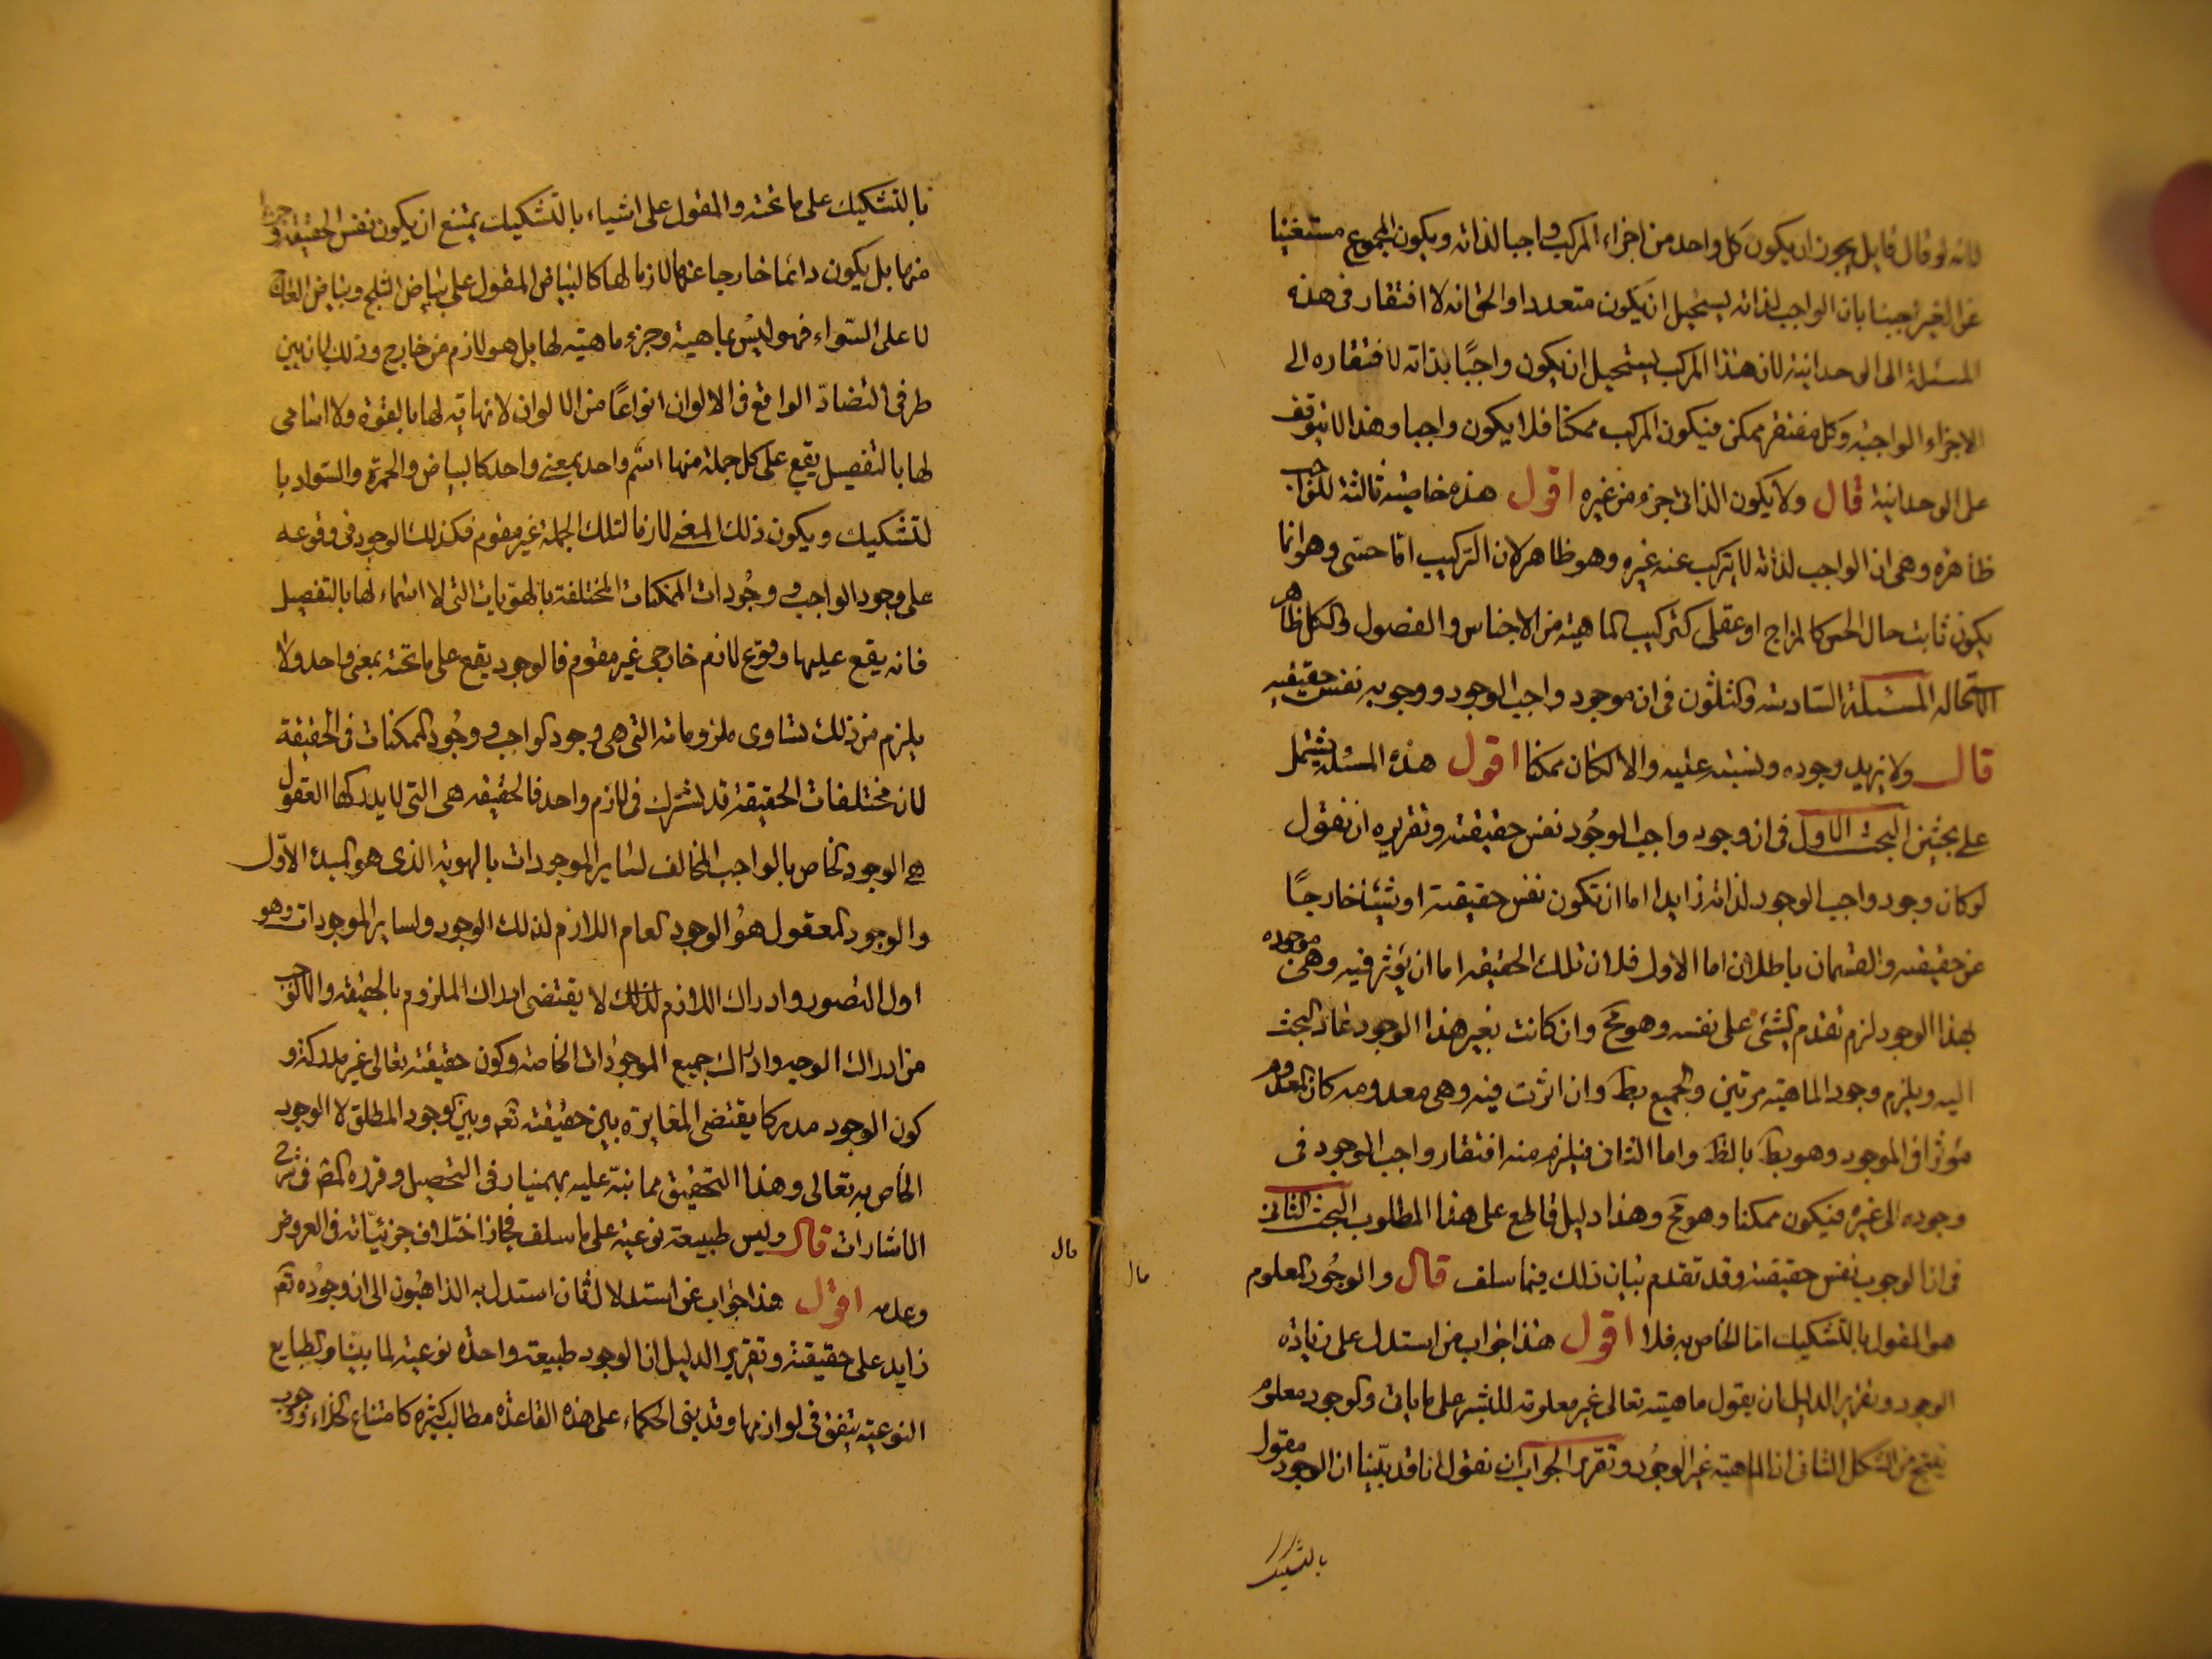 لانه لو قال قايل يجوز ان يكون كل واحد من اجزاء المركب واجبا لذاته ويكون المجموع مستغنيا
عن الغير اجبنا بان الواجب لذاته يستحيل ان يكون متعددا والحق انه لا افتقار فى هذه
المسئلة الى الوحدانية لان هذا المركب يستحيل ان يكون واجبًا بذاته لافتقاره الى
الاجزاء الواجبة وكل مفتقر ممكن فيكون المركب ممكنا فلا يكون واجبا وهذا لا يتوقف
على الوحدانية قال ولا يكون الذاتى جزء من غيره اقول هذه خاصية ثالثة للواجب
ظاهرة وهى ان الواجب لذاته لا يتركب عنه غيره وهو ظاهر لان التركيب اما حسّى وهو انما
يكون ثابت حال الحس كالمزاج او عقلى كتركيب الماهية من الاجناس والفصول والكل ظاهر
الاستحاله المسئلة السّادسة والثلثون فى ان موجود واجب الوجود ووجوبه نفس حقيقته
قال ولا يزيد وجوده ونسبته عليه والا لكان ممكنا اقول هذه المسئلة تشتمل
على بحثين البحث الاول فى ان وجود واجب الوجُود نفس حقيقته وتقريره ان نقول
لو كان وجود واجب الوجود لذاته زايدا اما ان تكون نفس حقيقته او شيئا خارجًا
عن حقيقته والقسمان باطلان اما الاول فلان تلك الحقيقه اما ان يؤثر فيه وهى موجوده
بهذا الوجود لزم تقدم الشئ على نفسه وهو مح وان كانت بغير هذا الوجود عاد البحث
اليه ويلزم وجود الماهية مرتين والجميع بط وان اثرت فيه وهى معدومه كان المعدوم
مؤثرا فى الموجود وهو بط بالظ واما الثانى فيلزم منه افتقار واجب الوجود فى
وجوده الى غيره فيكون ممكنا وهو مح وهذا دليل قاطع على هذا المطلوب البحث الثانى
فى ان الوجوب نفس حقيقته وقد تقدم بيان ذلك فيما سلف قال والوجُود المعلوم
هو المقول بالتشكيك امّا الخاص به فلا اقول هذا جواب من استدل على زيادة
الوجود وتقرير الدليل ان يقول ماهيته تعالى غير معلومة للبشر على ما ياتى والوجود معلوم
ينتج من الشكل الثانى ان الماهية غير الوجُود وتقرير الجواب ان نقول انا قد بيّنا ان الوجود مقول
بالتشكيك
قال
بالتشكيك على ما تحته والمقول على اشياء بالتشكيك يمتنع ان يكون نفس الحقيقه وجزءا
منها بل يكون دائما خارجا عنها لازما لها كالبياض المقول على بياض الثلج وبياض العاج
لا على السّواء فهو ليس بماهية وجزء ماهيته لها بل هو لازم من خارج وذلك لان بين
طرفى التضادّ الواقع فى الالوان انواعًا من الالوان لا نهاية لها بالقوة ولا اسامى
لها بالتفصيل يقع على كل جملة منها اسم واحد بمعنى واحد كالبياض والحمرة والسّواد با
لتشكيك ويكون ذلك المعنى لازما لتلك الجملة غير مقوم فكذلك الوجود فى وقوعه
على وجود الواجب وعلى وجُودات الممكنات المختلفة بالهوّيات التى لا اسماء لها بالتفصيل
فانه يقع عليها وقوع لازم خارجى غير مقوم فالوجود يقع على ما تحته بمعنى واحد ولا
يلزم من ذلك تساوى ملزوماته التى هى وجود الواجب ووجُود الممكنات فى الحقيقة
لان مختلفات الحقيقة قد تشترك فى لازم واحد فالحقيقه هى التى لا يدركها العقول
هى الوجود الخاص بالواجب المخالف لساير الموجودات بالهوية الذى هو المبدء الاوّل
والوجود المعقول هوُ الوجود العام اللازم لذلك الوجود ولساير الموجودات وهو
اول التصور وادراك اللازم لذلك لا يقتضى ادراك الملزوم بالحقيقه والا لوجب
من ادراك الوجود ادراك جميع الموجوُدات الخاصة وكون حقيقته تعالى غير مدركة و
كون الوجود مدركا يقتضى المغايرة بين حقيقته تع وبين وجود المطلق لا الوجود
الخاص به تعالى وهذا التحقيق مما نبّه عليه بهمنيار فى التحصيل وقرره المص فى شرح
الاشارات قال وليس طبيعة نوعية على ما سلف فجاز اختلاف جزئيّاته فى العروض
وعدمه اقول هذا جواب عن استدلال ثان استدل به الذاهبُون الى ان وجوُده تع
زايد على حقيقته وتقرير الدليل ان الوجود طبيعة واحدة نوعية لما بيّنا والطبايع
النوعية يتفق فى لوازمها وقد بنى الحكماء على هذه القاعدة مطالب كثيرة كامتناع الخلاء ووجود
قال